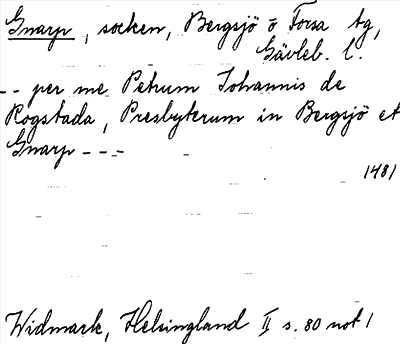 Gnarp, socken, Bergsjö o Forsa tg,
Gävleb. l.
-- per me Petrum Johannis de
Rogstada, Presbyterum in Bergsjö et
Gnarp ---
1481
Widmark, Helsingland II s. 80 not 1